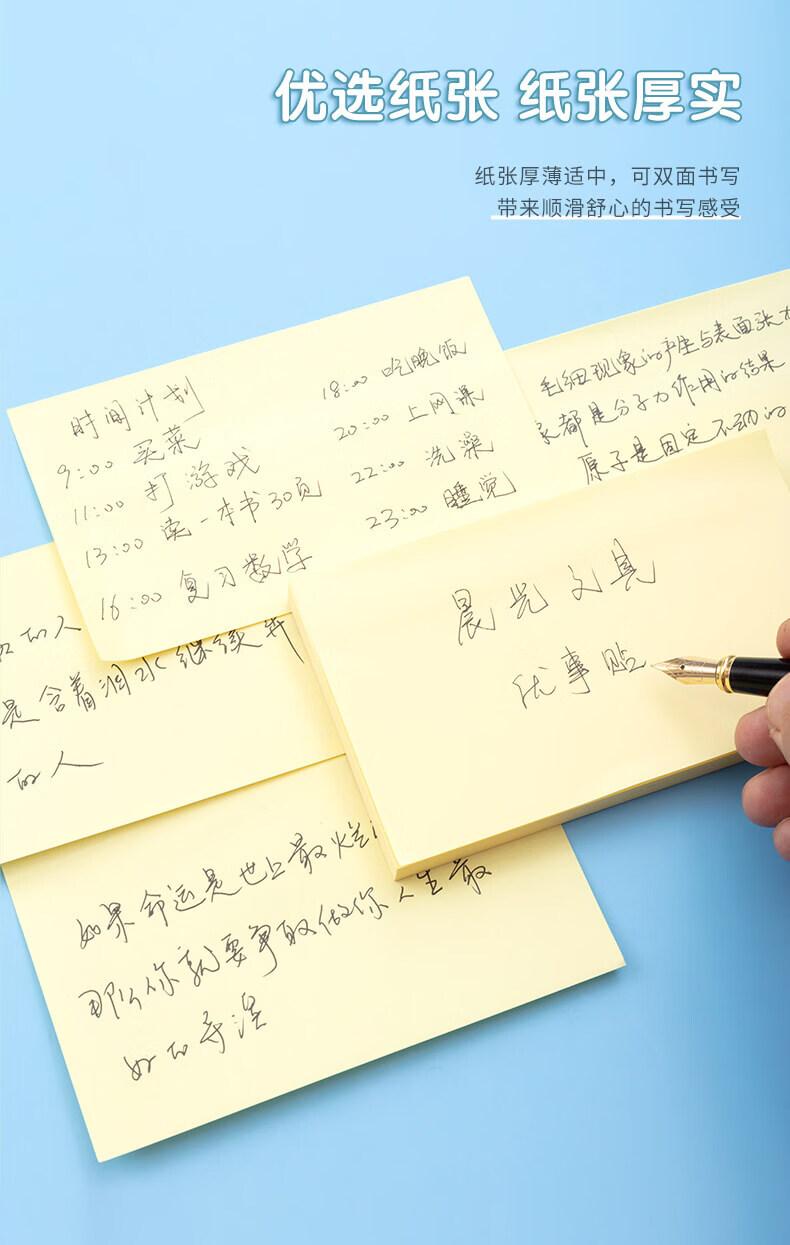 优选纸张 纸张厚实
纸张厚薄适中，可双面书写
带来顺滑舒心的书写感受
时间计划
9:00 买菜
11:00 打游戏
13:00 读一本书30页
16:00 复习数学
18:00 吃晚饭
20:00 上网课
22:00 洗澡
23:00 睡觉
毛细现象的产生与表面张
都是分子力作用的结果
原子是固定不动的
晨光文具
优事贴
人
是含着泪水继续
的人
如果命运是世上最烂
那么你就要争取做你人生最
好的导演